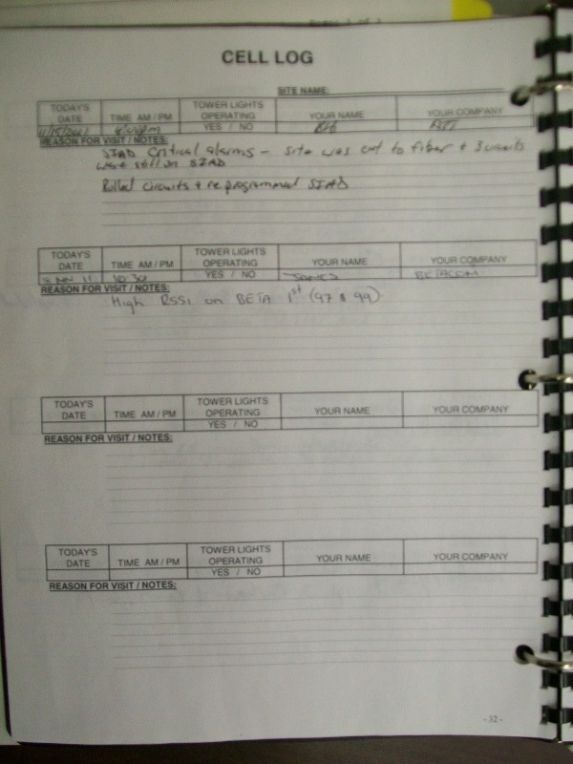 CELL LOG
SITE NAME:
TODAY'S DATE TIME AM / PM TOWER LIGHTS OPERATING YOUR NAME YOUR COMPANY
YES / NO
REASON FOR VISIT / NOTES:
SIAD Critical alarms - site was cut to fiber + 3 circuits
were still on SIAD
Rolled circuits + reprogrammed SIAD
TODAY'S DATE TIME AM / PM TOWER LIGHTS OPERATING YOUR NAME YOUR COMPANY
11 10:30 YES / NO JONES BETACOM
REASON FOR VISIT / NOTES:
High RSSI on BETA 1st (97 & 99)
TODAY'S DATE TIME AM / PM TOWER LIGHTS OPERATING YOUR NAME YOUR COMPANY
YES / NO
REASON FOR VISIT / NOTES:
TODAY'S DATE TIME AM / PM TOWER LIGHTS OPERATING YOUR NAME YOUR COMPANY
YES / NO
REASON FOR VISIT / NOTES:
- 32 -